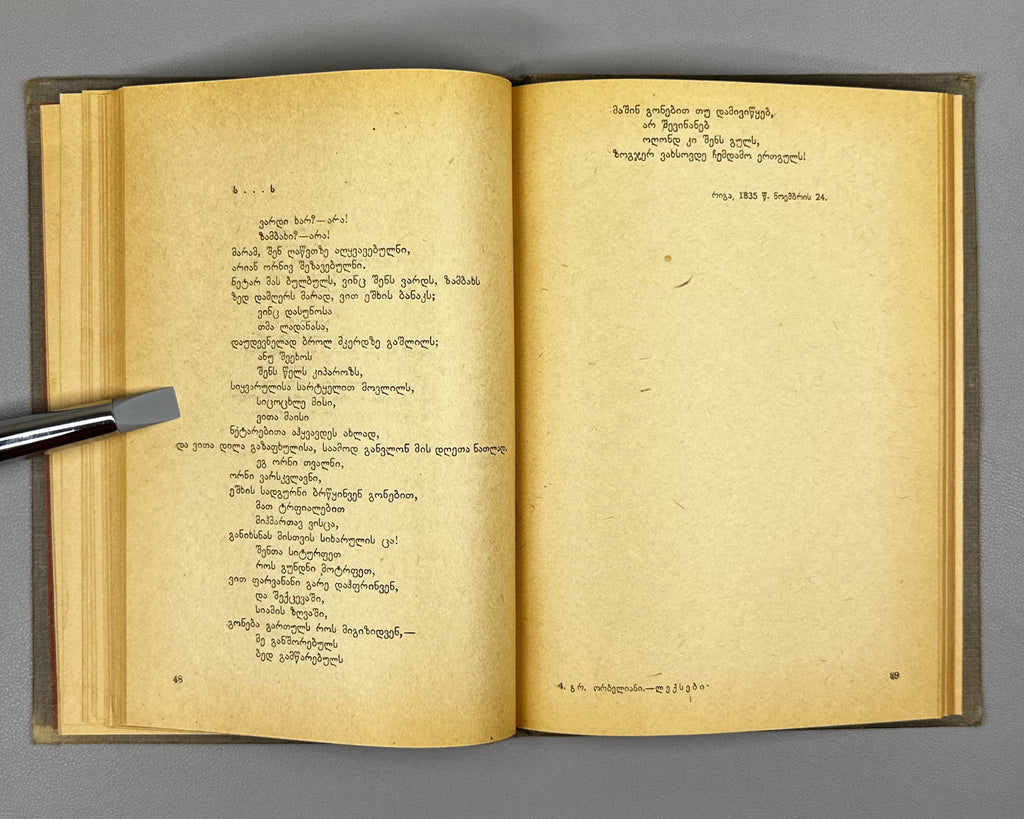 ს . . . ს
ვარდი ხარ?—არა!
ზამბახი?—არა!
მარამ, შენ ღაწვთზე აღყვავებულნი,
არიან ორნივ შეზავებულნი.
ნეტარ მას ბულბულს, ვინც შენს ვარდს, ზამბახს
ზედ დამღერს მარად, ვით ეშხის ბანაკს;
ვინც დასუნოსა
თმა ლადანასა,
დაუდევნელად ბროლ მკერდზე გაშლილს;
ანუ შეეხოს
შენს წელს კიპაროზს,
სიყვარულისა სარტყელით მოვლილს,
სიცოცხლე მისი,
ვითა მაისი
ნეტარებითა აჰყვავდეს ახლად,
და ვითა დილა გაზაფხულისა, საამოდ განვლონ მის დღეთა ნათლად.
ეგ ორნი თვალნი,
ორნი ვარსკვლავნი,
ეშხის სადგურნი ბრწყინვენ გონებით,
მათ ტრფიალებით
მიჰმართავ ვისცა,
განიხსნას მისთვის სიხარულის ცა!
შენთა სიტურფეთ
როს გუნდნი მოტრფეთ,
ვით ფარვანანი გარე დაჰფრინვენ,
და შექცევაში,
სიამის ზღვაში,
გონება გართულს როს მიგიზიდვენ,—
მე განშორებულს
ბედ გამწარებულს
48
მაშინ გონებით თუ დამივიწყებ,
არ შევინანებ
ოღონდ კი შენს გულს,
ზოგჯერ ვახსოვდე ჩემდამო ერთგულს!
რიგა, 1835 წ. ნოემბრის 24.
4. გრ. ორბელიანი.—ლექსები
49